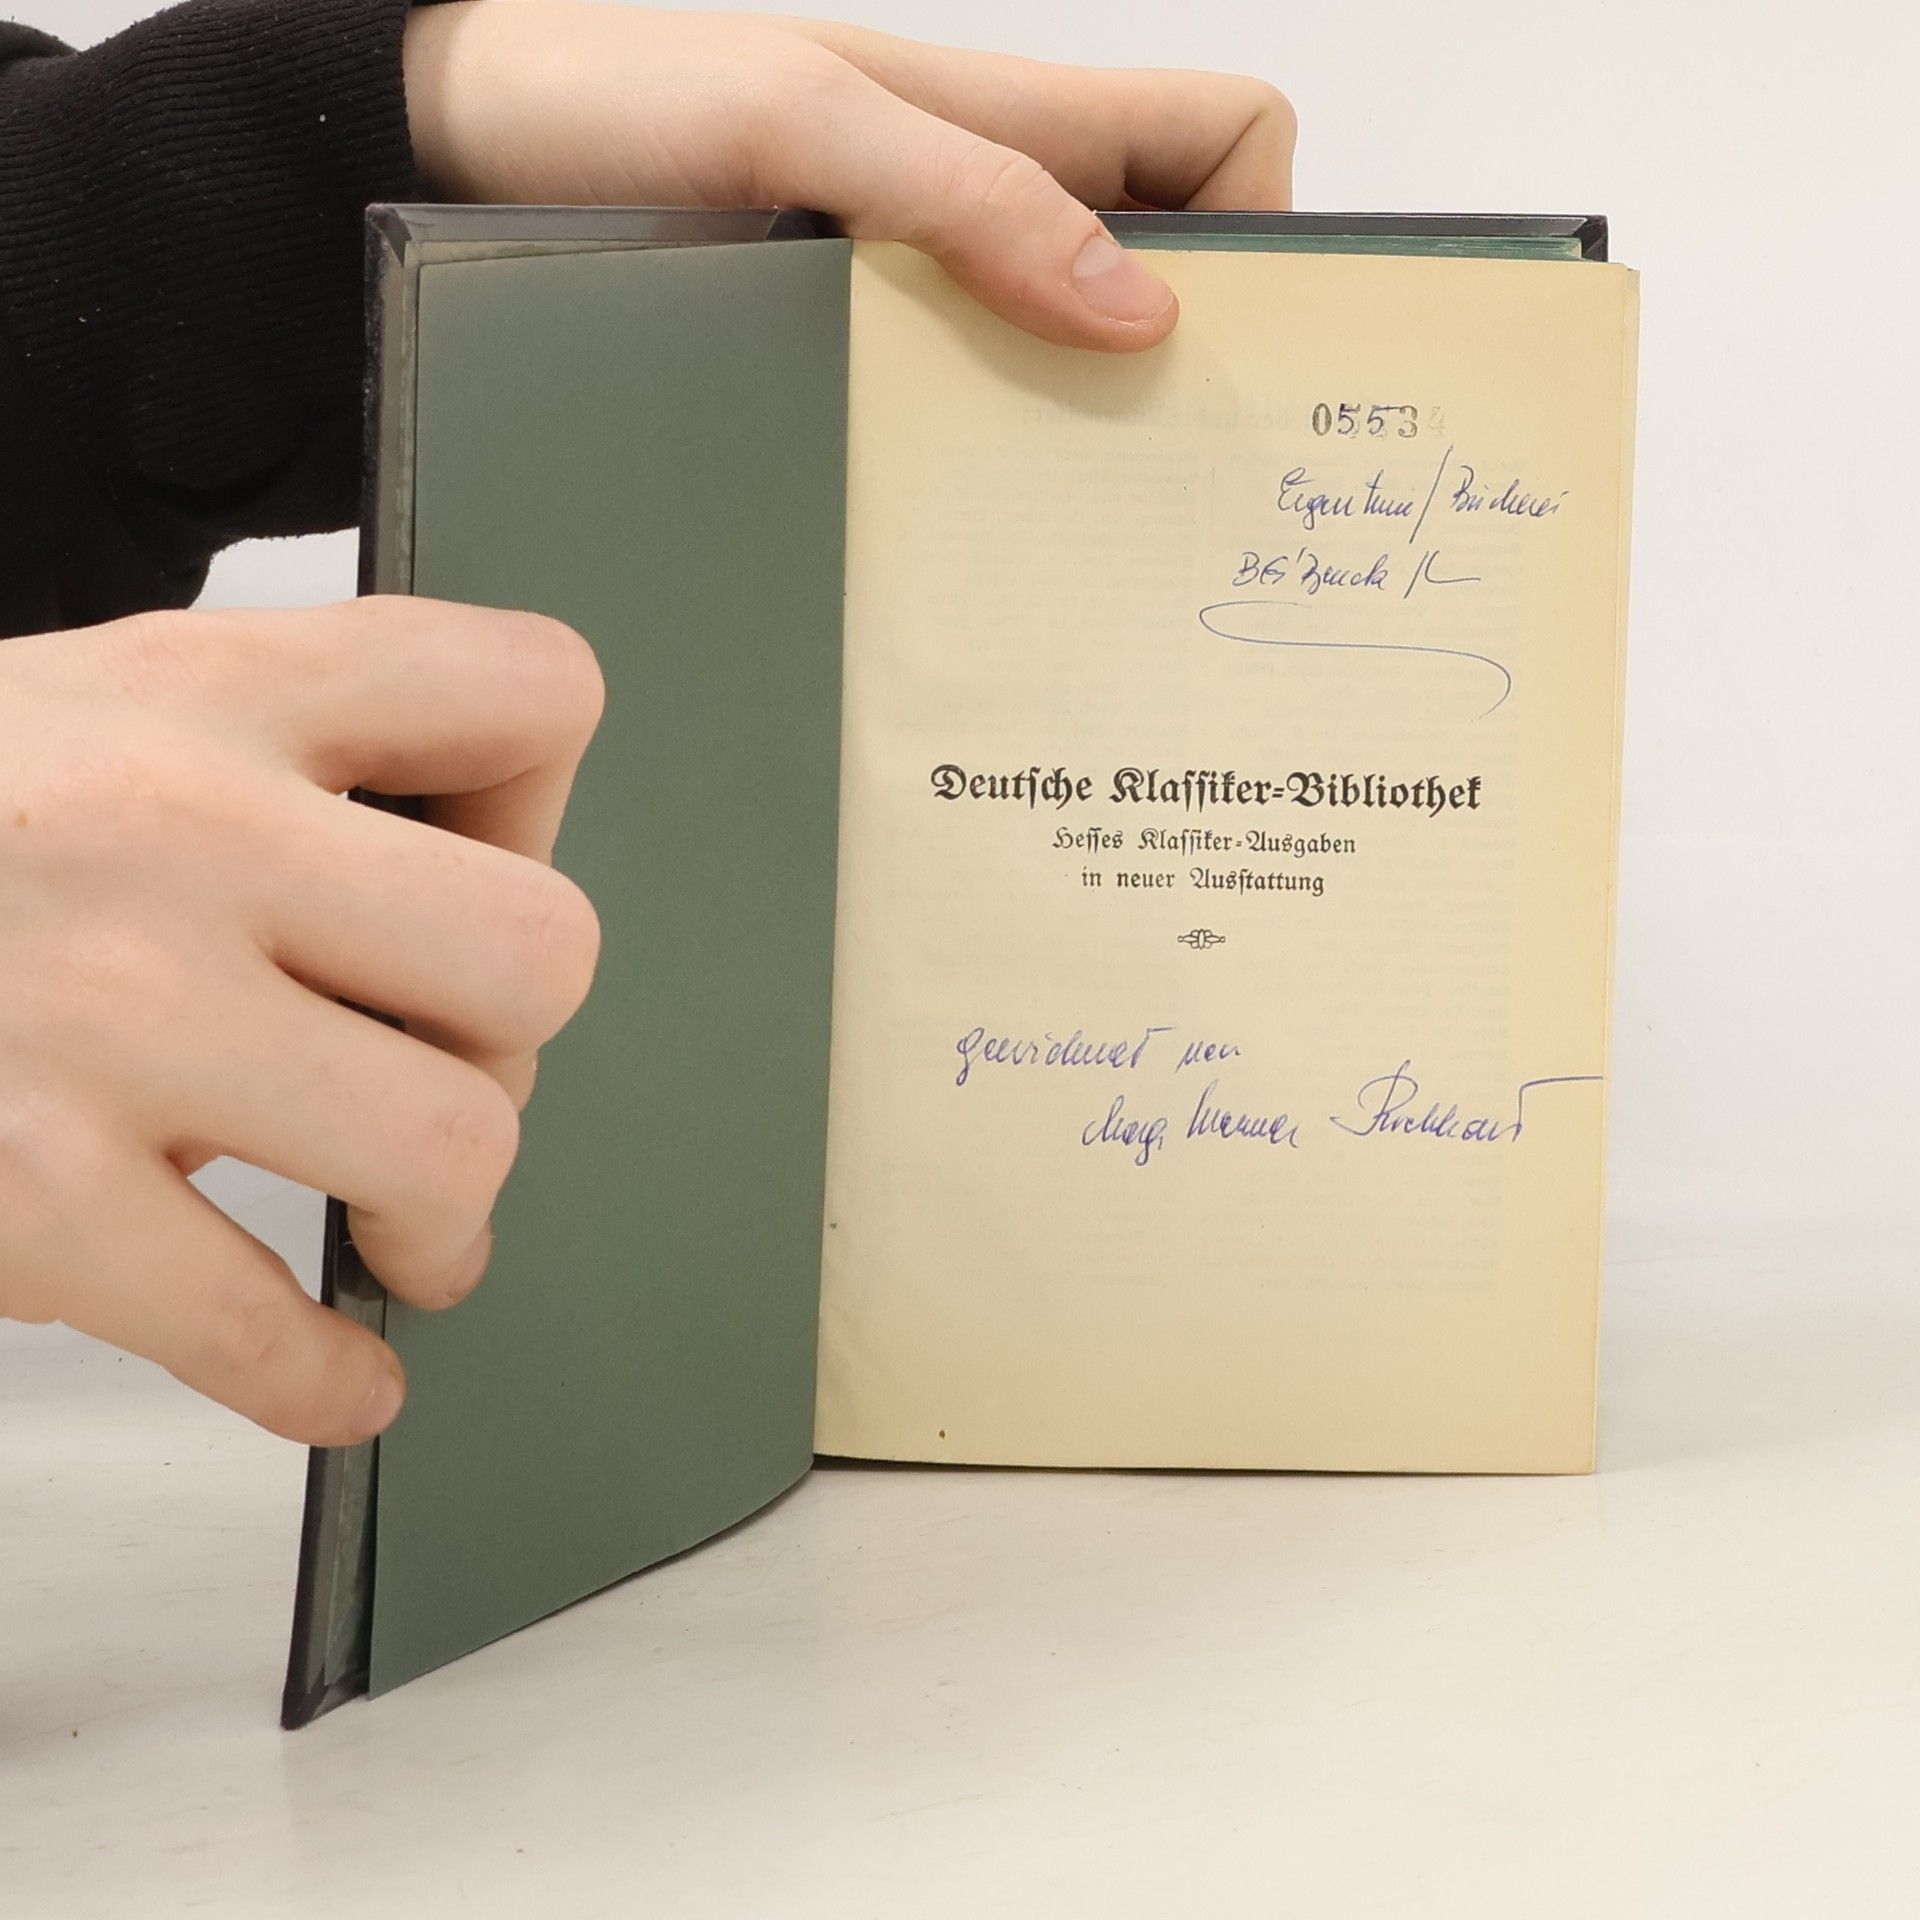 05534
Eigentum/Bücherei
BG Bruck /L
Deutsche Klassiker-Bibliothek
Hesses Klassiker-Ausgaben
in neuer Ausstattung
gewidmet von
Mag. Werner